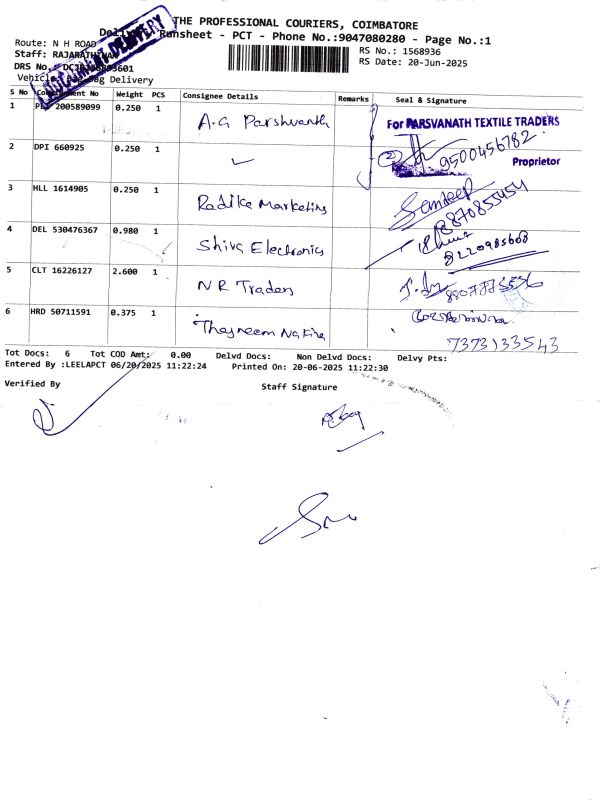 THE PROFESSIONAL COURIERS, COIMBATORE
Runsheet - PCT - Phone No.:9047080280 - Page No.:1
Route: N H ROAD
RS No.: 1568936
Staff: RAJARATHINA
RS Date: 20-Jun-2025
DRS No.:
Delivery
S No Consignment No Weight PCS Consignee Details Remarks Seal & Signature
1 200589099 0.250 1 A.G Parshvanth
For PARSVANATH TEXTILE TRADERS
2 DPI 660925 0.250 1 ✓
② 9500456782
Proprietor
3 HLL 1614905 0.250 1 Radike Marketing
Sandeep
8870855454
4 DEL 530476367 0.980 1 Shiva Electronics
8220985608
5 CLT 16226127 2.600 1 N R Traders
6 HRD 50711591 0.375 1 Thasneem Nakira
7373133543
Tot Docs: 6 Tot COD Amt: 0.00 Delvd Docs: Non Delvd Docs: Delvy Pts:
Entered By :LEELAPCT 06/20/2025 11:22:24 Printed On: 20-06-2025 11:22:30
Verified By Staff Signature